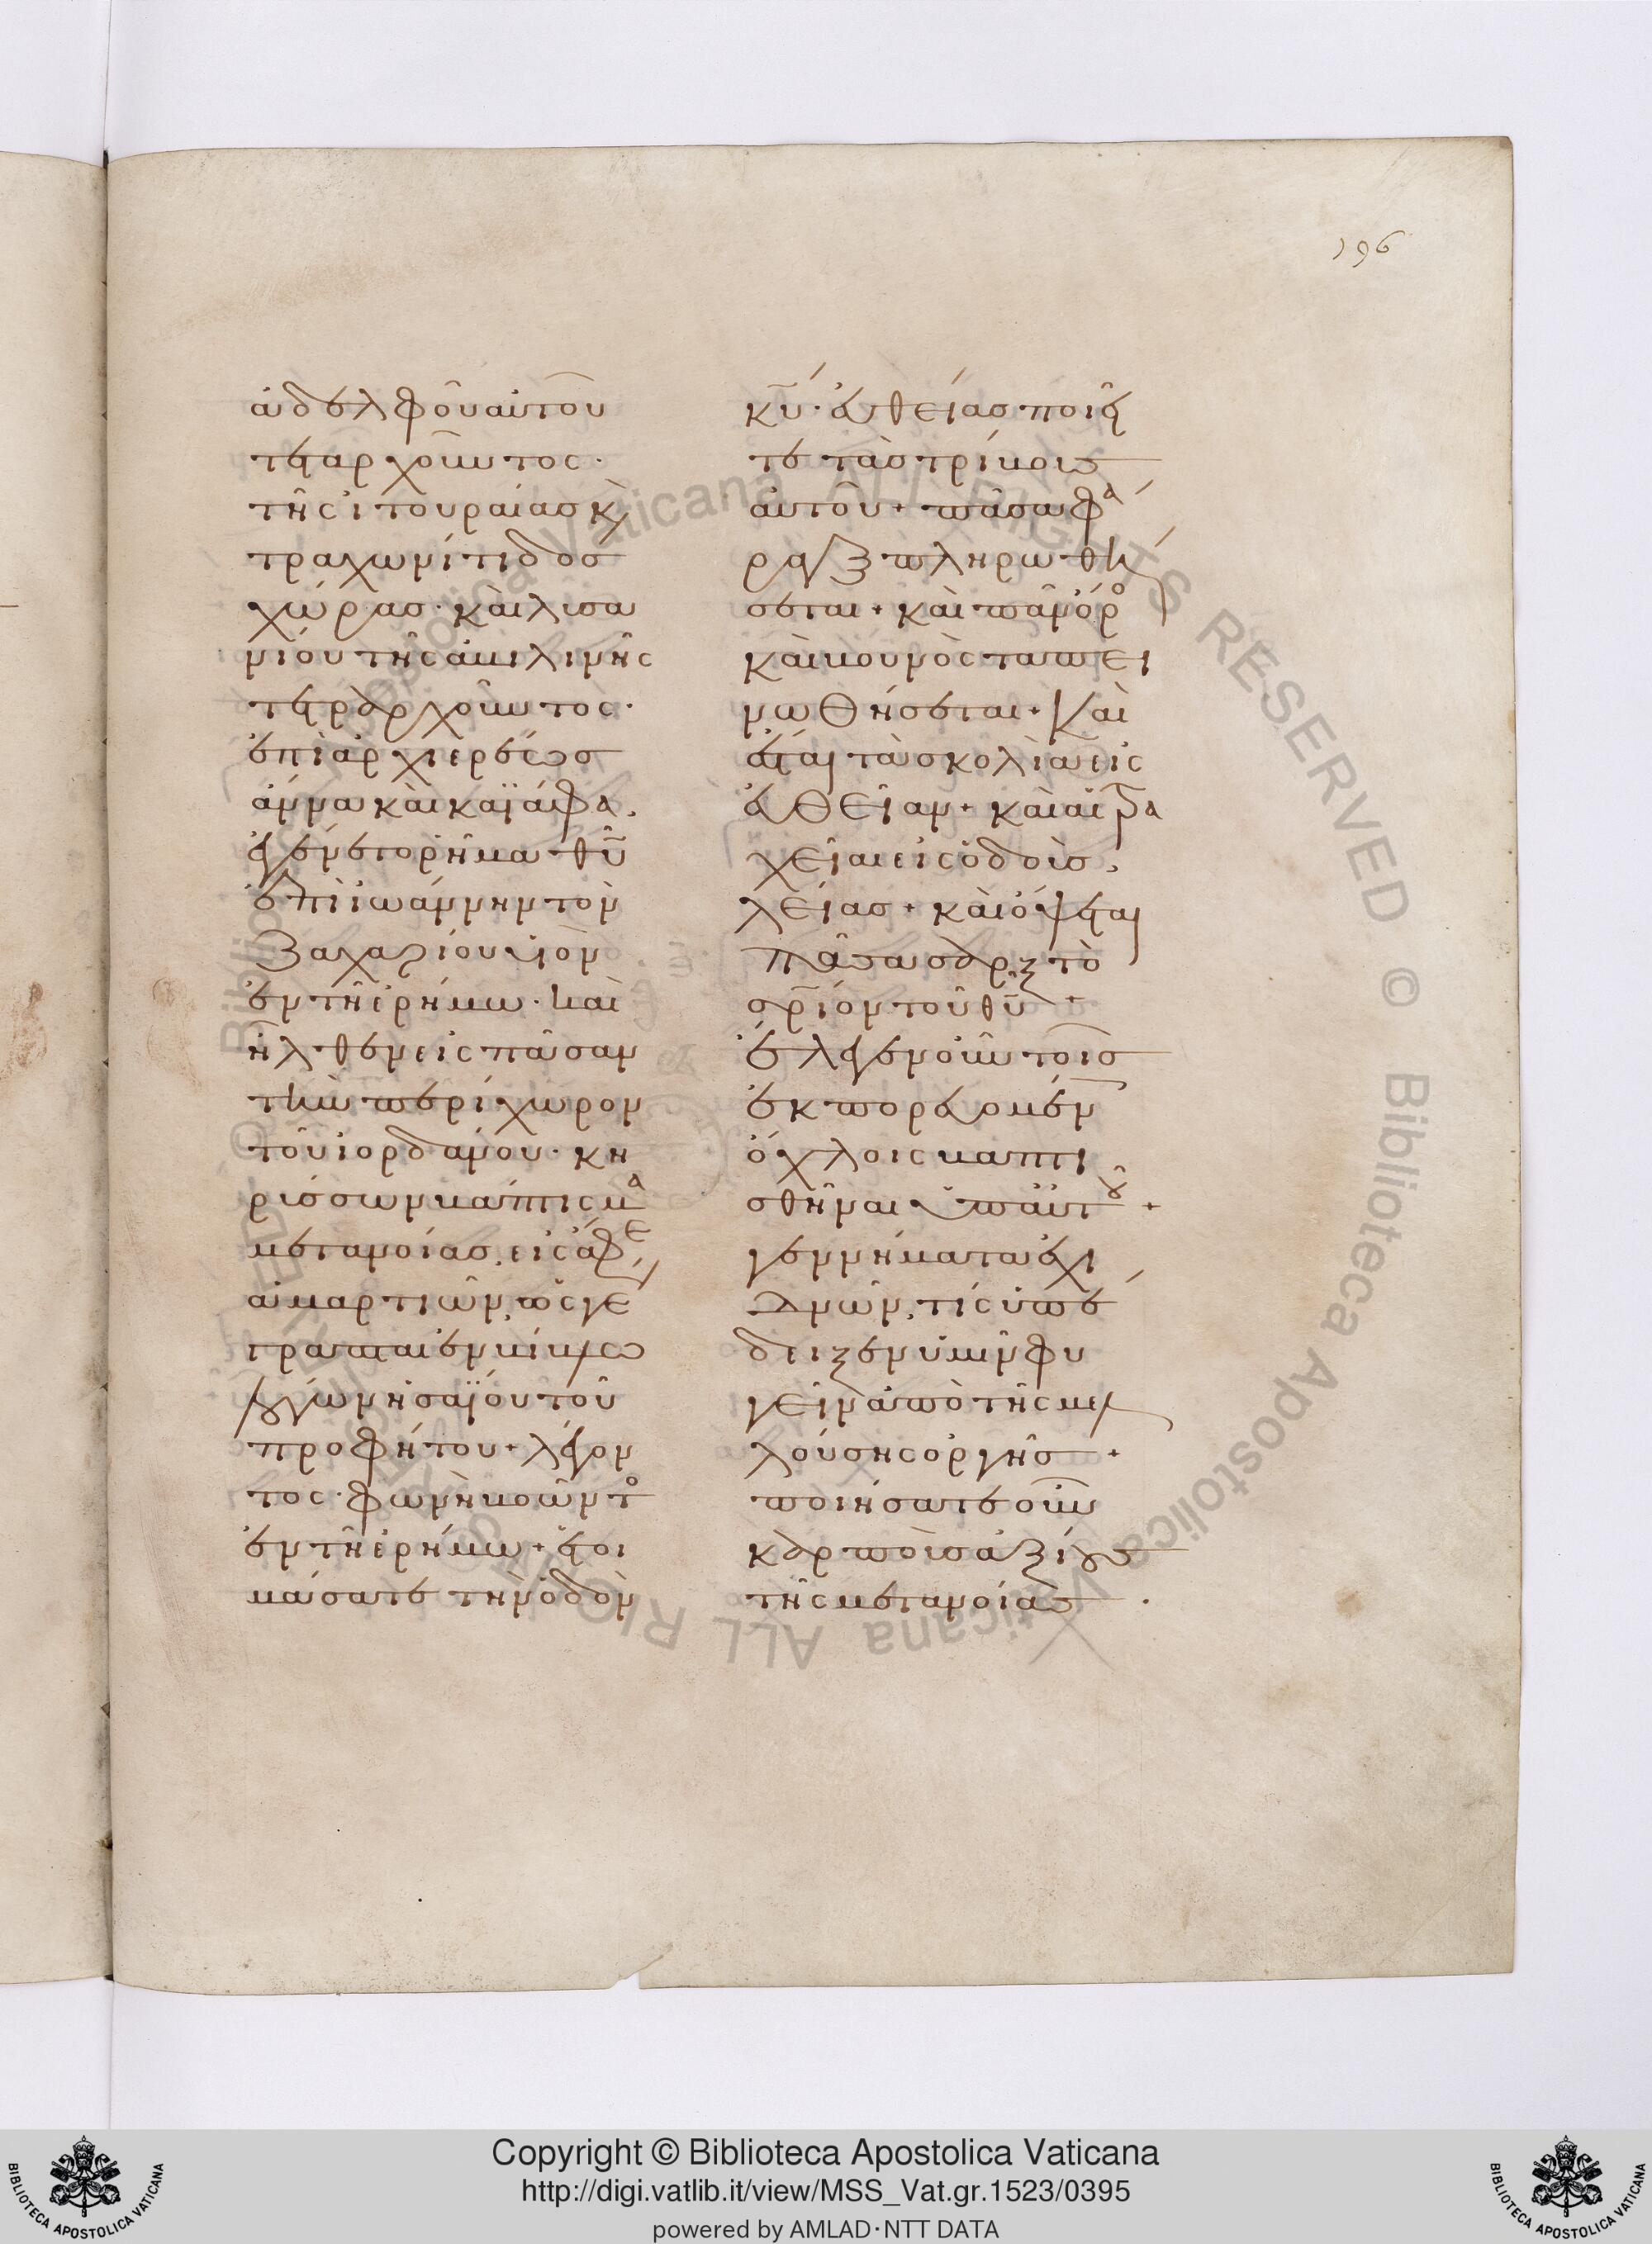 196
ἀδελφοῦ αὐτοῦ
τεαρχοῦντος·
τῆς ἰτουραίας κ(αὶ)
τραχωνίτιδος
χώρας· καὶ λυσα
νίου τῆς ἀβιλινῆς
τετραρχοῦντος·
ἐπὶ ἀρχιερέως
ἄννα καὶ καϊάφα,
ἐγένετο ῥῆμα θῦ
ἐπὶ ἰωάννην τὸν
ζαχαρίου υἱὸν
ἐν τῆ ἐρήμω· καὶ
ἦλθεν εἰς πᾶσαν
τὴν περίχωρον
τοῦ ἰορδάνου· κη
ρύσσων βάπτισμα
μετανοίας, εἰς ἄφε
ἁμαρτιῶν, ὡς γέ
γραπται ἐν βίβλω
λόγων ἡσαΐου τοῦ
προφήτου + λέγον
τος· φωνὴ βοῶντο
ἐν τῆ ἐρήμω + ἑτοι
μάσατε τὴν ὁδὸν
κῦ· εὐθείας ποιεῖ
τε τὰς τρίβους
αὐτοῦ + πᾶσα φά
ραγξ πληρωθή
σεται + καὶ πᾶν ὄρο
καὶ βουνὸς ταπει
νωθήσεται + καὶ
ἔσται τὰ σκολιὰ εἰς
εὐθεῖαν + καὶ αἱ τρα
χεῖαι εἰς ὁδοὺς
λείας + καὶ ὄψεται
πᾶσα σὰρξ τὸ
σρίον τοῦ θῦ +
ἔλεγεν οὖν τοῖς
ἐκπορευομέν
ὄχλοις βαπτι
σθῆναι ὑπ' αὐτοῦ +
γεννήματα ἐχι
δνῶν, τίς ὑπέ
δειξεν ὑμῖν φυ
γεῖν ἀπὸ τῆς μελ
λούσης ὀργῆς +
ποιήσατε οὖν
καρποὺς ἀξίους
τῆς μετανοίας ·
Copyright © Biblioteca Apostolica Vaticana
http://digi.vatlib.it/view/MSS_Vat.gr.1523/0395
powered by AMLAD·NTT DATA
BIBLIOTECA APOSTOLICA VATICANA
BIBLIOTECA APOSTOLICA VATICANA